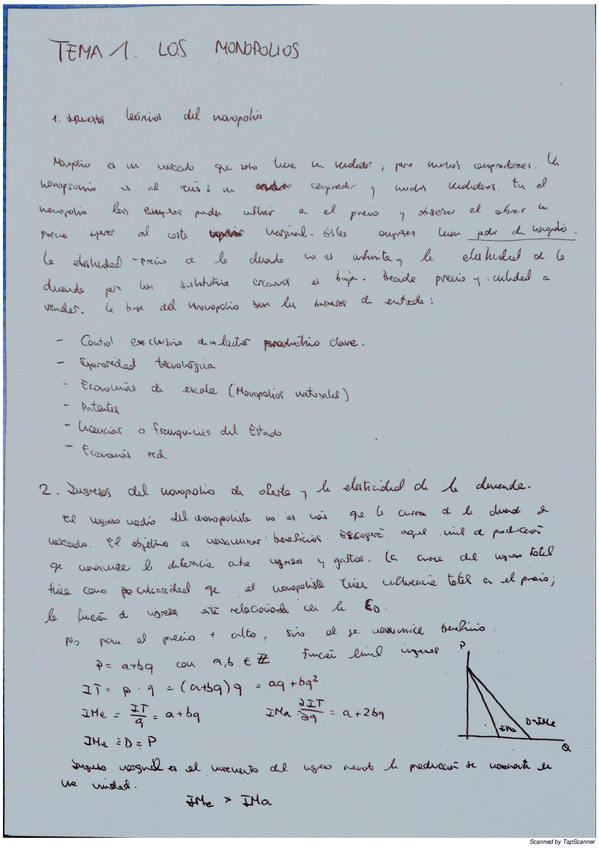 TEMA 1. LOS MONOPOLIOS
1. supuestos teóricos del monopolio
Monopolio es un mercado que solo tiene un vendedor, pero muchos compradores. Un
monopsonio es al revés: un comprador y muchos vendedores. En el
monopolio las empresas pueden influir en el precio y observar el cobrar un
precio superior al coste marginal. Estas empresas tienen poder de monopolio.
La elasticidad-precio de la demanda no es infinita y la elasticidad de la
demanda por los sustitutivos cercanos es baja. Decide precio y cantidad a
vender. La base del monopolio son las barreras de entrada:
- Control exclusivo de un factor productivo clave.
- Superioridad tecnológica
- Economías de escala (Monopolios naturales)
- Patentes
- Licencias o franquicias del Estado
- Economías red
2. Ingresos del monopolio de oferta y la elasticidad de la demanda.
El ingreso medio del monopolista no es más que la curva de la demanda de
mercado. El objetivo es maximizar beneficios. Escogerá aquel nivel de producción
que maximice la diferencia entre ingresos y gastos. La curva del ingreso total
tiene como particularidad que el monopolista tiene influencia total en el precio;
la función de ingresos está relacionada con la ED.
No pone el precio + alto, sino el que maximice beneficio.
P = a+bq con a,b ∈ Z Función lineal ingresos
IT = p · q = (a+bq)q = aq + bq²
IMe = IT/q = a+bq IMa ∂IT/∂q = a + 2bq
IMe = D = P
P
IMa
D=IMe
Q
Ingreso marginal es el incremento del ingreso cuando la producción se incrementa en
una unidad.
IMe > IMa
Scanned by TapScanner